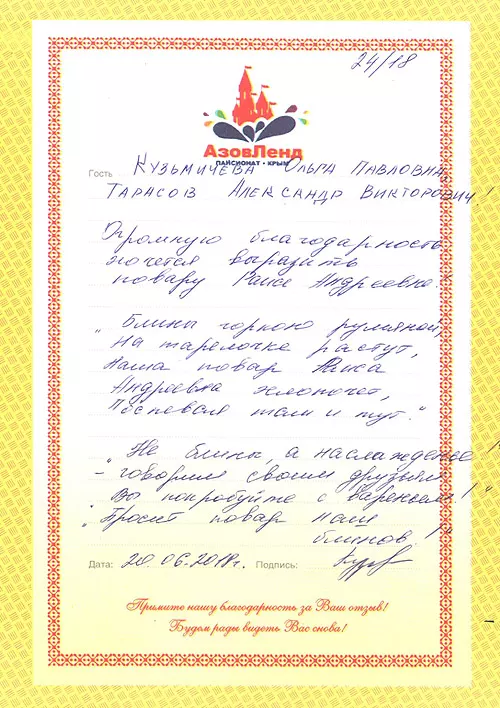 24/18
АзовЛенд
ПАНСИОНАТ • КРЫМ
Гость Кузьмичева Ольга Павловна,
Тарасов Александр Викторович!
Огромную благодарность
хочется выразить
повару Раисе Андреевне.
„Блины горкою румяной,
На тарелочке растут,
Наша повар Раиса
Андреевна хлопочет,
Поспевая там и тут."
„Не блины, а наслажденье!
- говорим своим друзьям
Вы попробуйте с вареньем!"
„Просит повар наш
блинов!"
Дата: 20.06.2018г. Подпись:
Примите нашу благодарность за Ваш отзыв!
Будем рады видеть Вас снова!